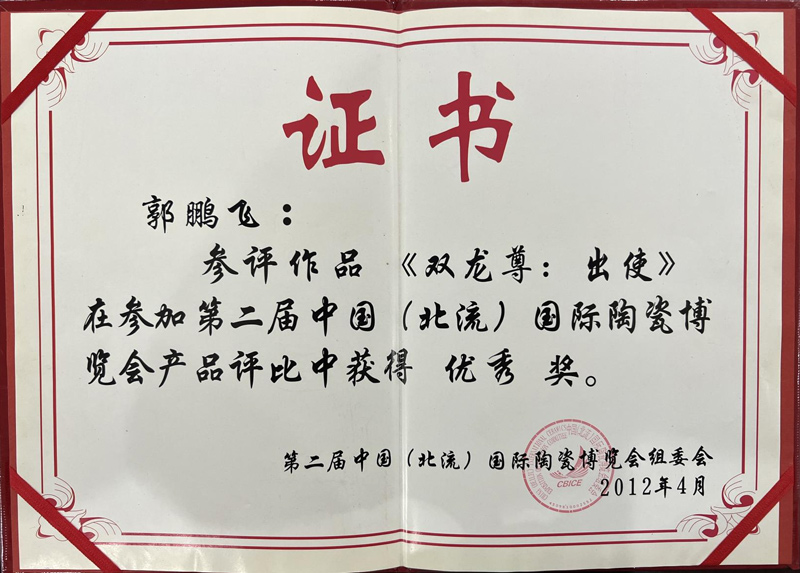 证书
郭鹏飞：
参评作品《双龙尊：出使》
在参加第二届中国（北流）国际陶瓷博
览会产品评比中获得 优秀 奖。
第二届中国（北流）国际陶瓷博览会组委会
CBICE
2012年4月